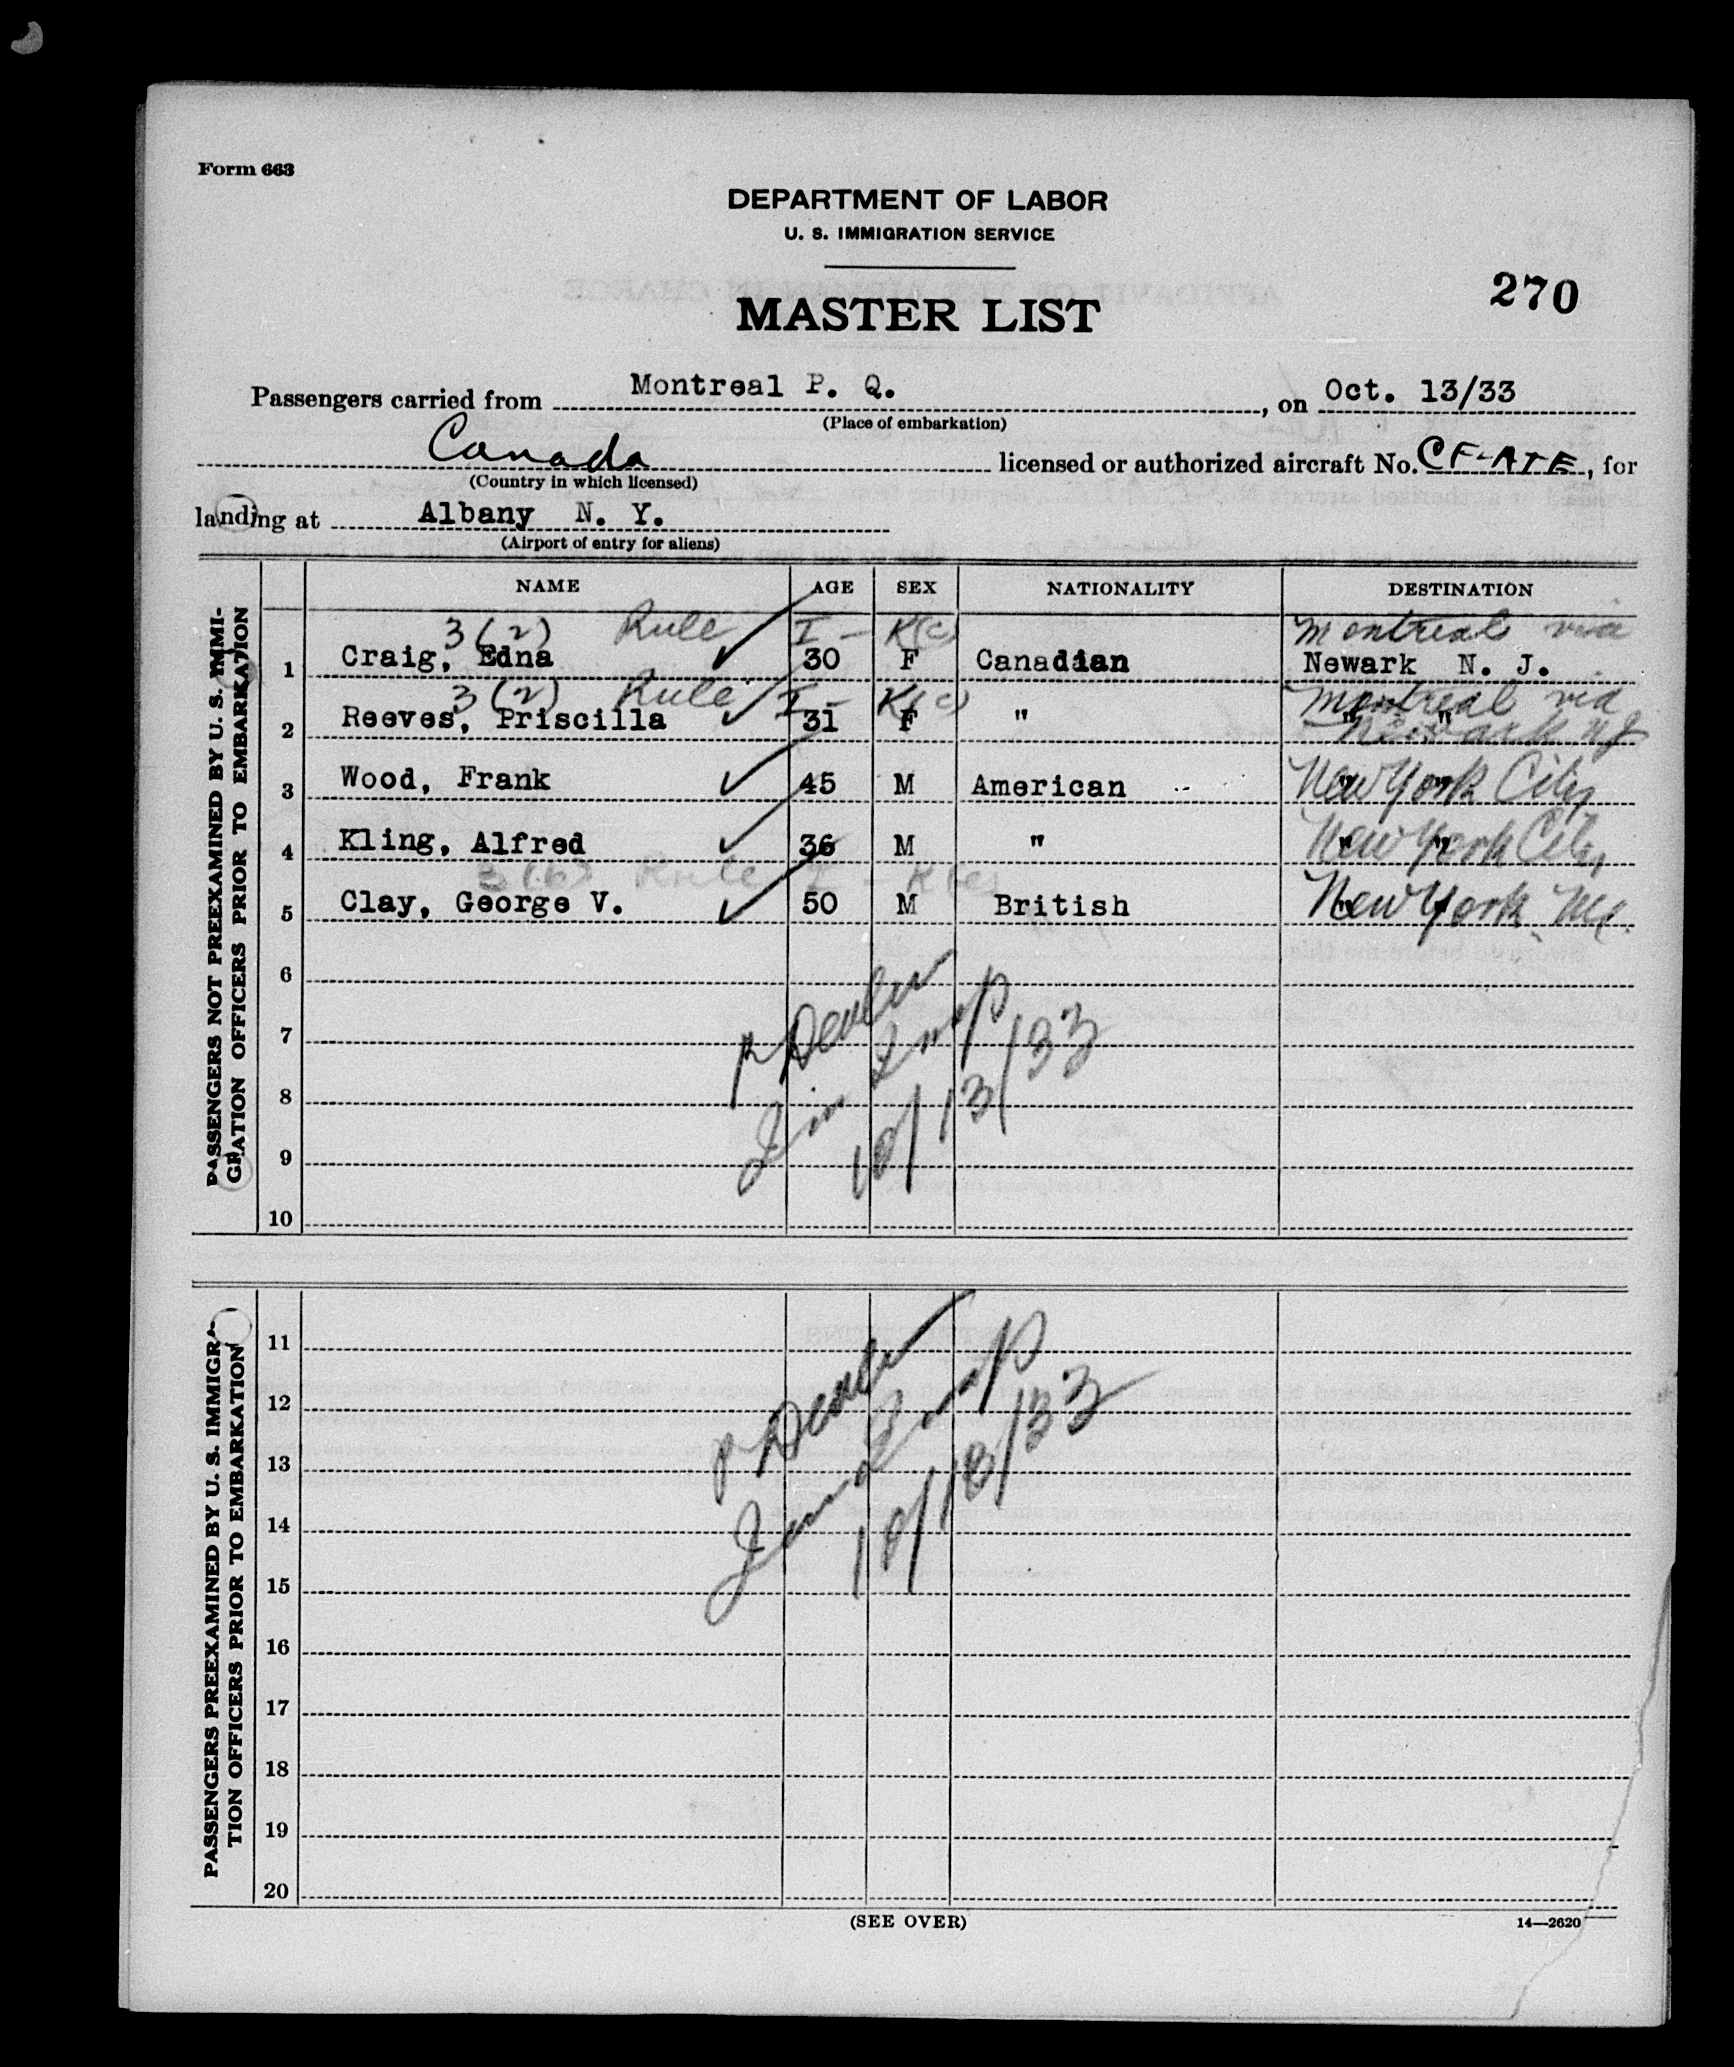 Form 663
DEPARTMENT OF LABOR
U. S. IMMIGRATION SERVICE
270
MASTER LIST
Passengers carried from Montreal P. Q., on Oct. 13/33
(Place of embarkation)
Canada licensed or authorized aircraft No. CF-ATE, for
(Country in which licensed)
landing at Albany N. Y.
(Airport of entry for aliens)
PASSENGERS NOT PREEXAMINED BY U. S. IMMI-
GRATION OFFICERS PRIOR TO EMBARKATION
NAME AGE SEX NATIONALITY DESTINATION
3(2) Rule I - K(c) Montreal via
1 Craig, Edna ✓ 30 F Canadian Newark N. J.
3(2) Rule I - K(c) Montreal via
2 Reeves, Priscilla ✓ 31 F " " " Newark NJ
3 Wood, Frank ✓ 45 M American " " New York City
4 Kling, Alfred ✓ 36 M " " " New York City
3(6) Rule I - K
5 Clay, George V. ✓ 50 M British " " New York
6
7
8
10/13/33
9
10
PASSENGERS PREEXAMINED BY U. S. IMMIGRA-
TION OFFICERS PRIOR TO EMBARKATION
11
12
13
10/13/33
14
15
16
17
18
19
20
(SEE OVER)
14—2620